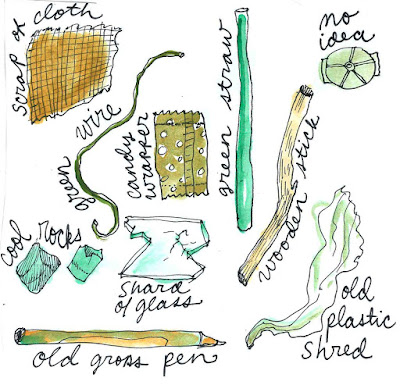 scrap of cloth
no
idea
green wire
candy
wrapper
green straw
wooden stick
cool rocks
shard
of glass
old
plastic
shred
old gross pen